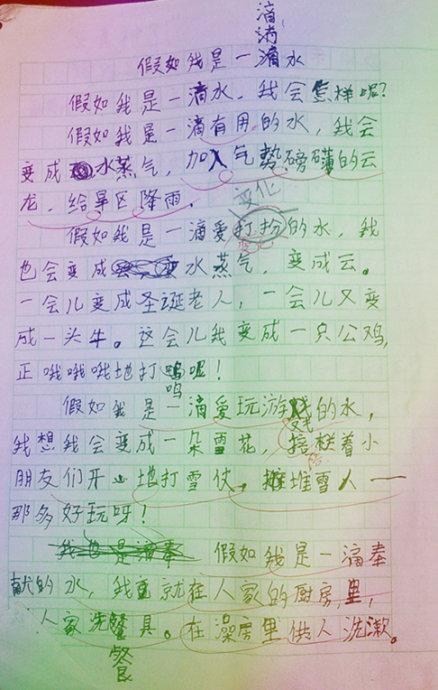 滴
滴
假如我是一滴水
假如我是一滴水，我会怎样呢？
假如我是一滴有用的水，我会
变成水蒸气，加入气势磅礴的云
龙，给旱区降雨。
变化
假如我是一滴爱打扮的水，我
也会变成水蒸气，变成云。
一会儿变成圣诞老人，一会儿又变
成一头牛。这会儿我变成一只公鸡，
正哦哦哦地打鸣呢！
鸣
假如我是一滴爱玩游戏的水，
戏
我想我会变成一朵雪花，陪着小
朋友们开心地打雪仗，堆雪人——
那多好玩呀！
假如我是一滴奉
献的水，我就在人家的厨房里，
人家洗餐具。在澡房里供人洗漱。
餐